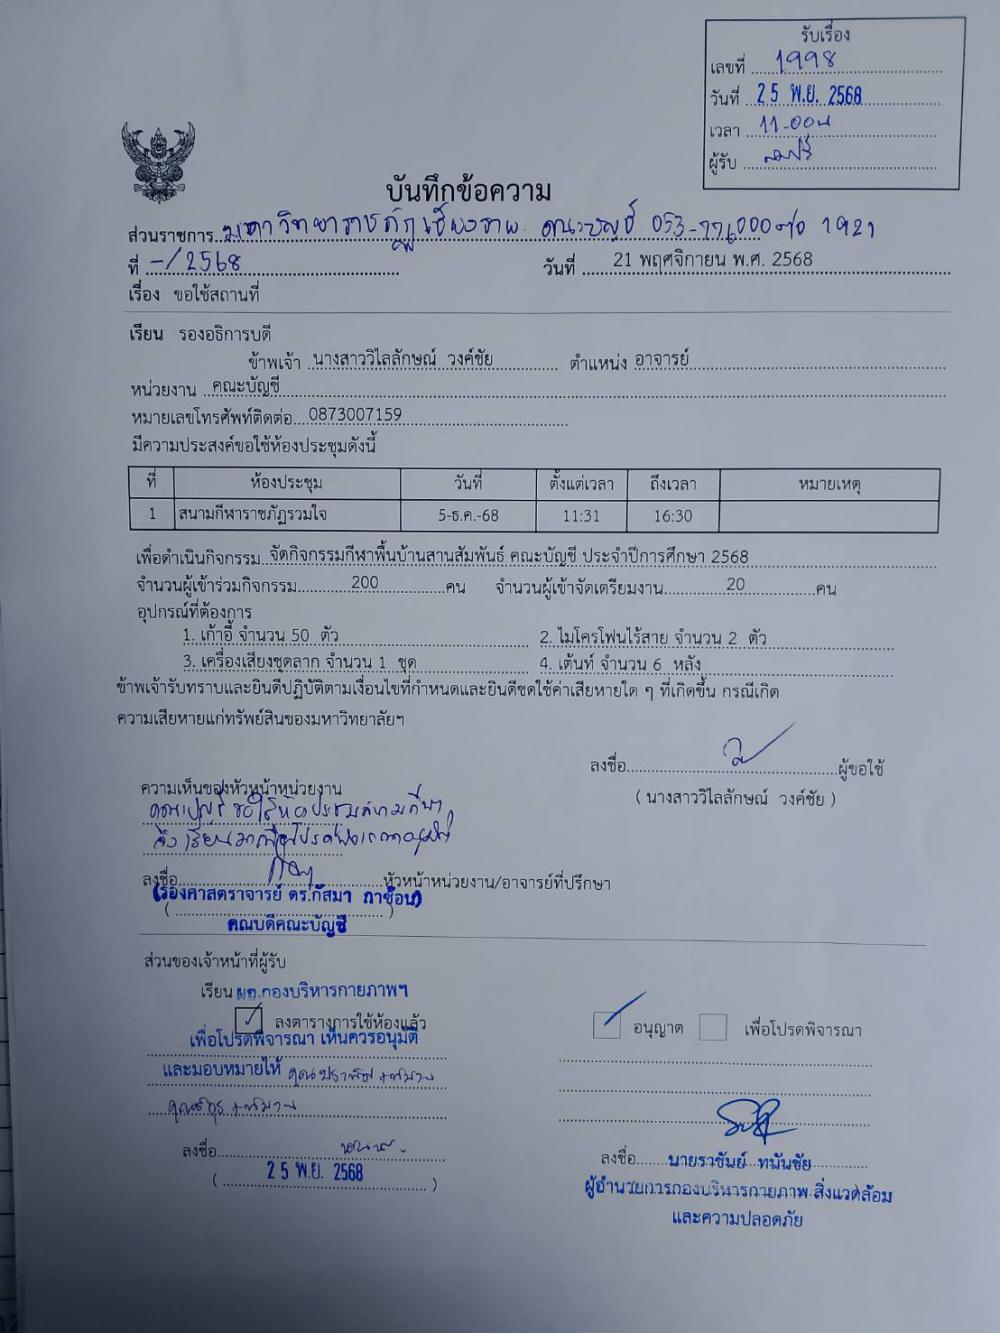 รับเรื่อง
เลขที่ 1998
วันที่ 25 พ.ย. 2568
เวลา 11.00น
ผู้รับ
บันทึกข้อความ
ส่วนราชการ มหาวิทยาราชภัฏเชียงราย คณะบัญชี 053-776000 ต่อ 1921
ที่ -/2568 วันที่ 21 พฤศจิกายน พ.ศ. 2568
เรื่อง ขอใช้สถานที่
เรียน รองอธิการบดี
ข้าพเจ้า นางสาววิไลลักษณ์ วงค์ชัย ตำแหน่ง อาจารย์
หน่วยงาน คณะบัญชี
หมายเลขโทรศัพท์ติดต่อ 0873007159
มีความประสงค์ขอใช้ห้องประชุมดังนี้
ที่ ห้องประชุม วันที่ ตั้งแต่เวลา ถึงเวลา หมายเหตุ
1 สนามกีฬาราชภัฏรวมใจ 5-ธ.ค.-68 11:31 16:30
เพื่อดำเนินกิจกรรม จัดกิจกรรมกีฬาพื้นบ้านสานสัมพันธ์ คณะบัญชี ประจำปีการศึกษา 2568
จำนวนผู้เข้าร่วมกิจกรรม 200 คน จำนวนผู้เข้าจัดเตรียมงาน 20 คน
อุปกรณ์ที่ต้องการ
1. เก้าอี้ จำนวน 50 ตัว 2. ไมโครโฟนไร้สาย จำนวน 2 ตัว
3. เครื่องเสียงชุดลาก จำนวน 1 ชุด 4. เต้นท์ จำนวน 6 หลัง
ข้าพเจ้ารับทราบและยินดีปฏิบัติตามเงื่อนไขที่กำหนดและยินดีชดใช้ค่าเสียหายใด ๆ ที่เกิดขึ้น กรณีเกิด
ความเสียหายแก่ทรัพย์สินของมหาวิทยาลัยฯ
ลงชื่อ ผู้ขอใช้
( นางสาววิไลลักษณ์ วงค์ชัย )
ความเห็นของหัวหน้าหน่วยงาน
คณะบัญชี ขอใช้ห้องประชุมสนามกีฬา
จึงเรียนมาเพื่อโปรดพิจารณาอนุมัติ
ลงชื่อ หัวหน้าหน่วยงาน/อาจารย์ที่ปรึกษา
(รองศาสตราจารย์ ดร.กัสมา กาซ้อน)
คณบดีคณะบัญชี
ส่วนของเจ้าหน้าที่ผู้รับ
เรียน ผอ.กองบริหารกายภาพฯ
ลงตารางการใช้ห้องแล้ว
เพื่อโปรดพิจารณา เห็นควรอนุมัติ
และมอบหมายให้
ลงชื่อ
( 25 พ.ย. 2568 )
อนุญาต เพื่อโปรดพิจารณา
ลงชื่อ นายราชันย์ ทมันชัย
ผู้อำนวยการกองบริหารกายภาพ สิ่งแวดล้อม
และความปลอดภัย